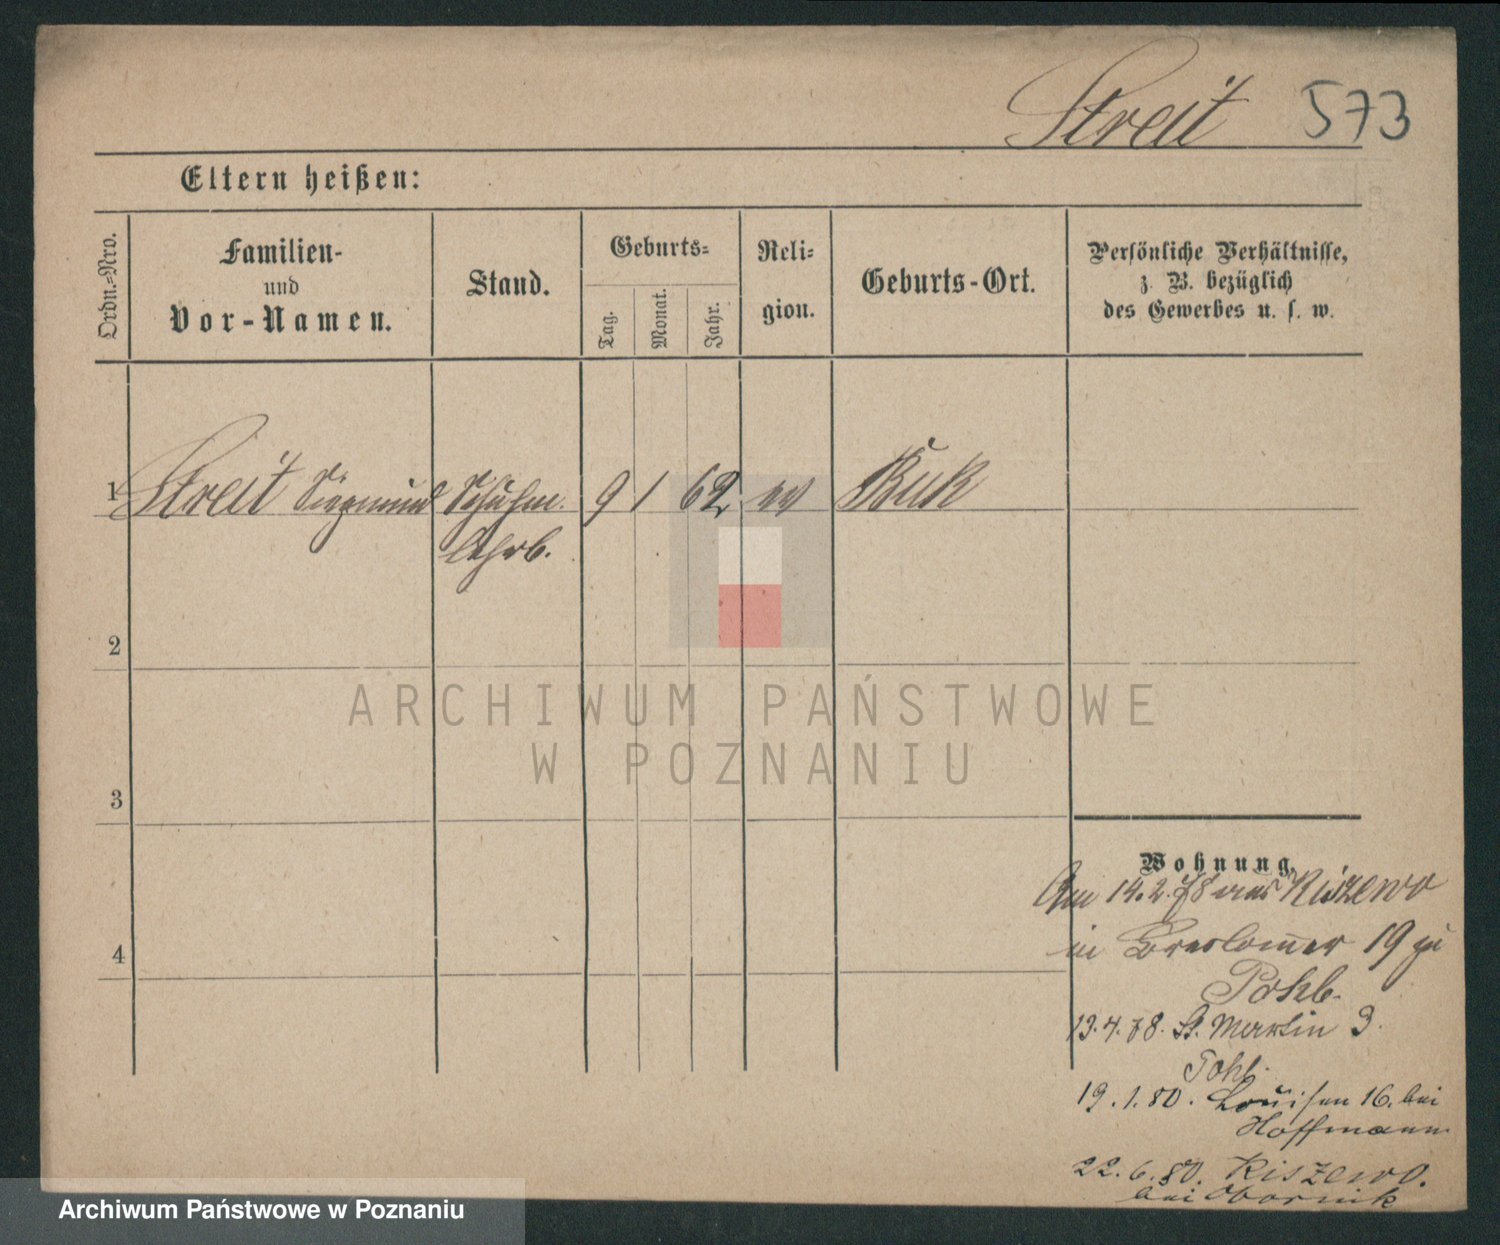 Streit 573
Eltern heißen:
Ordn.=Nro.
Familien-
und
Vor-Namen.
Stand.
Geburts=
Tag.
Monat.
Jahr.
Reli=
gion.
Geburts-Ort.
Persönliche Verhältnisse,
z. B. bezüglich
des Gewerbes u. s. w.
1 Streit Siegmund Schuhm. 9 1 62 ev Buk
Lehrb.
2
3
4
Wohnung.
Am 14.2.78 aus Kiszewo
in Breslauer 19 zu
Pohl.
13.4.78. St. Martin 3.
Pohl.
19.1.80. Louisen 16. bei
Hoffmann
22.6.80. Kiszewo.
bei Obornik
ARCHIWUM PAŃSTWOWE
W POZNANIU
Archiwum Państwowe w Poznaniu